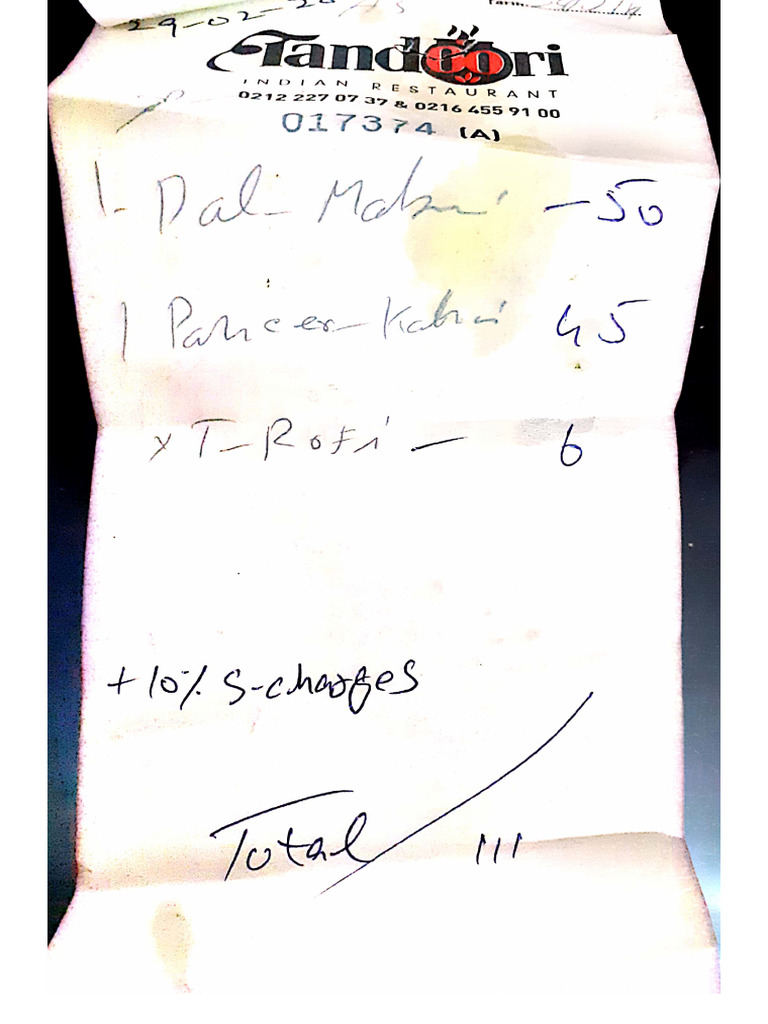 29-02-20
Tandoori
INDIAN RESTAURANT
0212 227 07 37 & 0216 455 91 00
017374 (A)
1- Dal-Makni - 50
1 Paneer-Kahai 45
x T-Roti - 6
+10% S-charges
Total 111